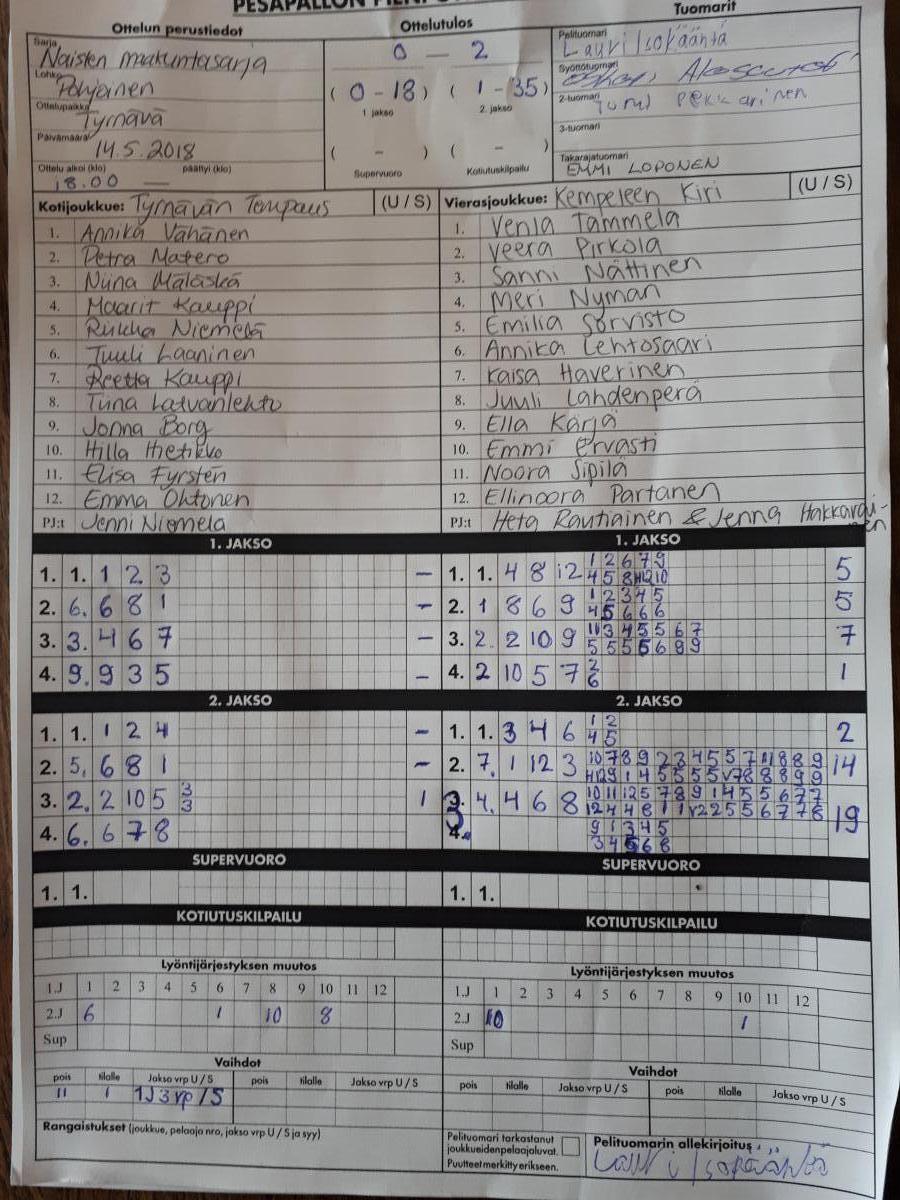 PESÄPALLON
Ottelun perustiedot
Ottelutulos
Tuomarit
Sarja
Naisten maakuntasarja
Lohko
Pohjoinen
Ottelupaikka
Tyrnävä
Päivämäärä
14.5.2018
Ottelu alkoi (klo) päättyi (klo)
18.00 —
0 — 2
( 0 - 18 ) ( 1 - 35 )
1. jakso 2. jakso
( - ) ( - )
Supervuoro Kotiutuskilpailu
Pelituomari
Lauri Isopääntä
Syöttötuomari
2-tuomari
Tomi Pekkarinen
3-tuomari
Takarajatuomari
EMMI LOPONEN
Kotijoukkue: Tyrnävän Tempaus (U / S)
1. Annika Vähänen
2. Petra Matero
3. Niina Mälaskä
4. Maarit Kauppi
5. Riikka Niemelä
6. Tuuli Laaninen
7. Reetta Kauppi
8. Tiina Latvanlehto
9. Jonna Borg
10. Hilla Hietikko
11. Elisa Fyrstén
12. Emma Ohtonen
PJ:t Jenni Niemelä
Vierasjoukkue: Kempeleen Kiri (U / S)
1. Venla Tammela
2. Veera Pirkola
3. Sanni Nättinen
4. Meri Nyman
5. Emilia Sorvisto
6. Annika Lehtosaari
7. Kaisa Haverinen
8. Juuli Lahdenperä
9. Ella Kärjä
10. Emmi Ervasti
11. Noora Sipilä
12. Ellinoora Partanen
PJ:t Heta Rautiainen & Jenna Hakkarainen
1. JAKSO
1. 1. 1 2 3 —
2. 6. 6 8 1 —
3. 3. 4 6 7 —
4. 9. 9 3 5 —
1. JAKSO
1. 1. 4 8 12 5
1 2 6 7 9
2. 1 8 6 9 5
1 2 3 4 5
4 5 6 6 6
3. 2. 2 10 9 7
11 3 4 5 5 6 7
5 5 5 5 6 8 9
4. 2 10 5 7 1
2
6
2. JAKSO
1. 1. 1 2 4 —
2. 5. 6 8 1 —
3. 2. 2 10 5 1
3
3
4. 6. 6 7 8
2. JAKSO
1. 1. 3 4 6 2
1 2
4 5
2. 7. 1 12 3 14
10 7 8 9 2 3 4 5 5 7 11 8 8 9
3. 4. 4 6 8 19
4.
9 1 3 4 5
3 4 5 6 8
SUPERVUORO
1. 1.
SUPERVUORO
1. 1.
KOTIUTUSKILPAILU
KOTIUTUSKILPAILU
Lyöntijärjestyksen muutos
1.J 1 2 3 4 5 6 7 8 9 10 11 12
2.J 6 1 10 8
Sup
Lyöntijärjestyksen muutos
1.J 1 2 3 4 5 6 7 8 9 10 11 12
2.J 10 1
Sup
Vaihdot
pois tilalle Jakso vrp U / S pois tilalle Jakso vrp U / S
11 1 1J3vp/S
Vaihdot
pois tilalle Jakso vrp U / S pois tilalle Jakso vrp U / S
Rangaistukset (joukkue, pelaaja nro, jakso vrp U / S ja syy)
Pelituomari tarkastanut
joukkueidenpelaajaluvat.
Puutteet merkitty erikseen.
Pelituomarin allekirjoitus:
Lauri Isopääntä